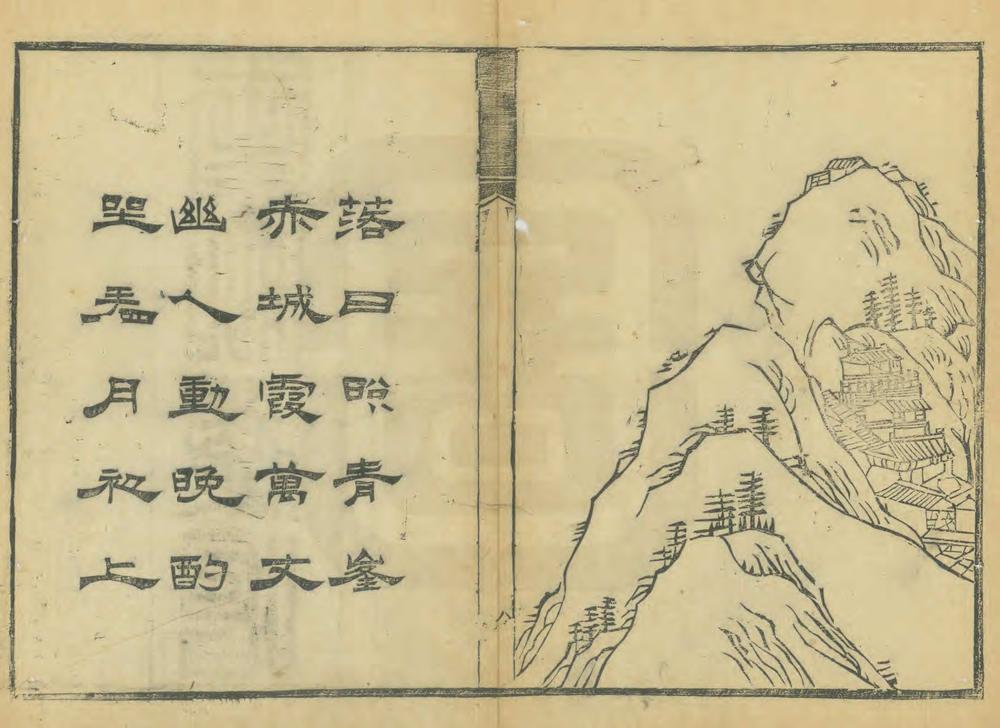 落日照青峯
赤城霞萬丈
幽人動晚酌
坐看月初上
八